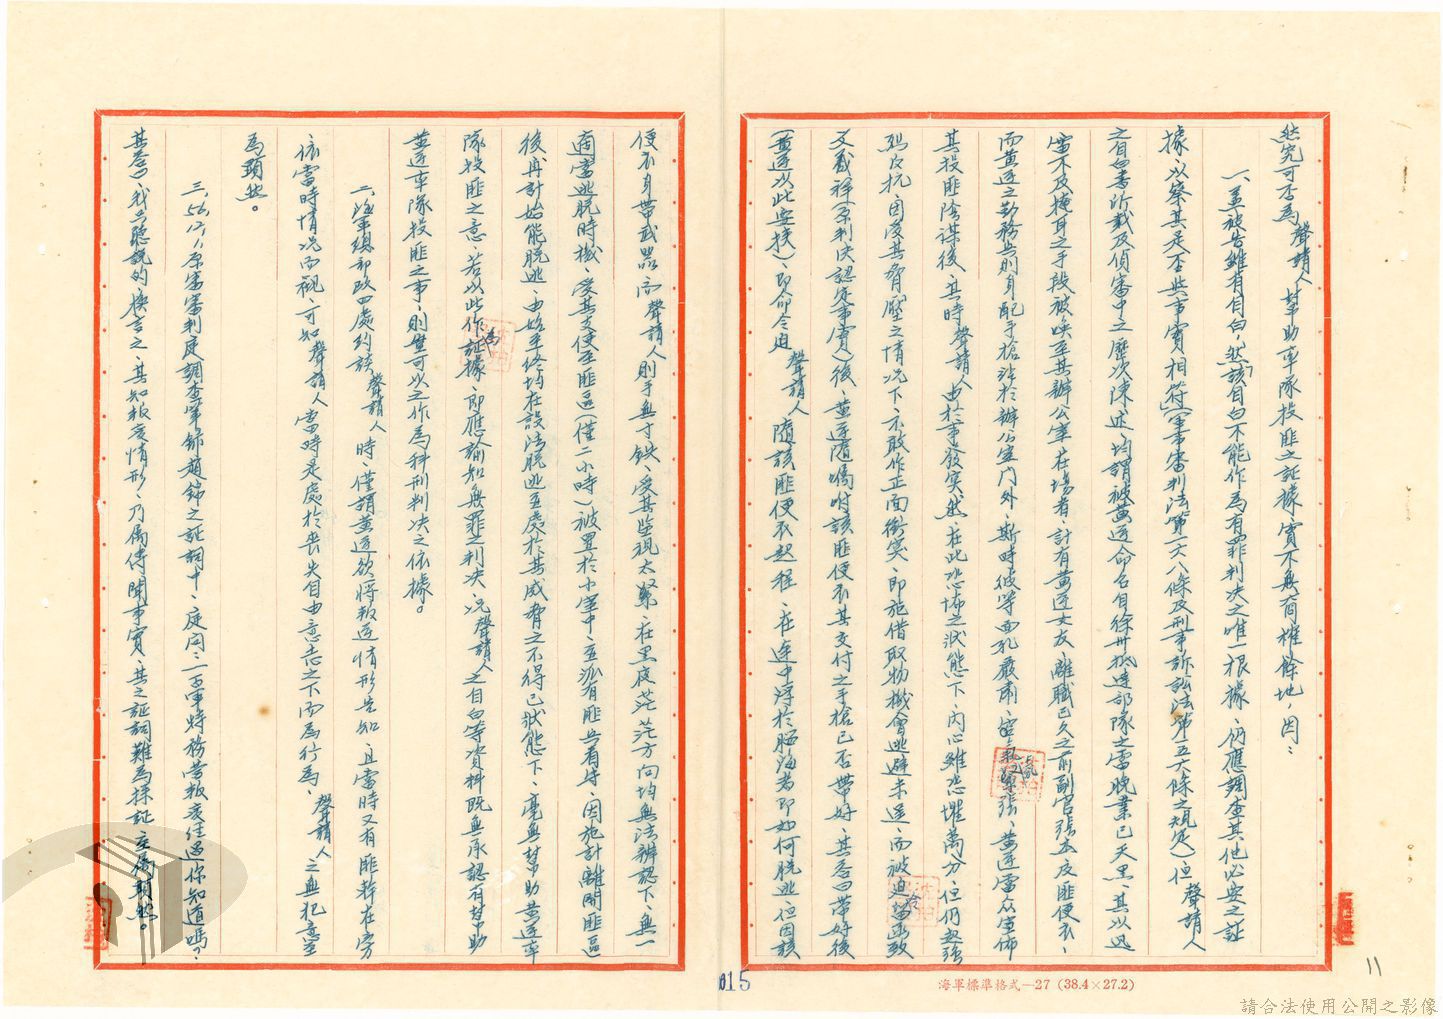 然究可否為聲請人幫助率隊投匪之証據，實不無商榷餘地，因：
一、蓋被告雖有自白，然該自白不能作為有罪判決之唯一根據，仍應調查其他必要之証
據，以察其是否與事實相符（軍事審判法第一六八條及刑事訴訟法第一五六條之規定）但聲請人
之自白書所載及偵審中之歷次陳述，均謂被黃達命名自徐州抵達部隊之當晚業已天黑、其以迅
雷不及掩耳之手段被喚至其辦公室、在場者、計有黃達女友、離職已久之前副官張本及匪便衣、
而黃達之勤務兵則身配手槍站於辦公室內外、斯時彼等面孔嚴肅、空氣緊張、黃達當眾宣佈
其投匪陰謀後、其時聲請人由於事發突然、在此恐怖之狀態下、內心雖恐懼萬分、但仍起強
烈反抗、因受其脅壓之情況下、不敢作正面衝突、即施借取物機會逃避未遂、而被迫留函致
文載祥（原判決認定事實）後、黃達隨囑咐該匪便衣其交付之手槍已否帶好、其答曰帶好後
（黃達以此要挾）即命令迫聲請人隨該匪便衣起程、在途中浮於腦海者即如何脫逃、但因該
便衣身帶武器、而聲請人則手無寸鉄、受其監視太緊、在黑夜茫茫方向均無法辨認下、無一
適當逃脫時機、受其支使至匪區（僅二小時）被置於小室中、並派有匪兵看守、因施計離開匪區
後、再計始能脫逃、由始至終均在設法脫逃至處於其威脅之不得已狀態下、毫無幫助黃達率
隊投匪之意、若以此作為証據、即應諭知無罪之判決、況聲請人之自白等次資料既無承認有幫助
黃達率隊投匪之事、則豈可以之作為科刑判決之依據。
二、海軍總部政四處約談聲請人時、僅謂黃達欲將叛逆情形告知、且當時又有匪幹在旁
依當時情況而視、可知聲請人當時是處於喪失自由意志之下而為行為、聲請人之無犯意至
為顯然。
三、56、12、1、原審審判庭調查軍師趙錦之証詞中、庭問：二百軍特務營叛變經過你知道嗎？、
其答：我是聽說的、換言之、其知叛變情形、乃屬傳聞事實、其之証詞難為採証、至為顯然。
015
海軍標準格式—27（38.4×27.2）
11
請合法使用公開之影像